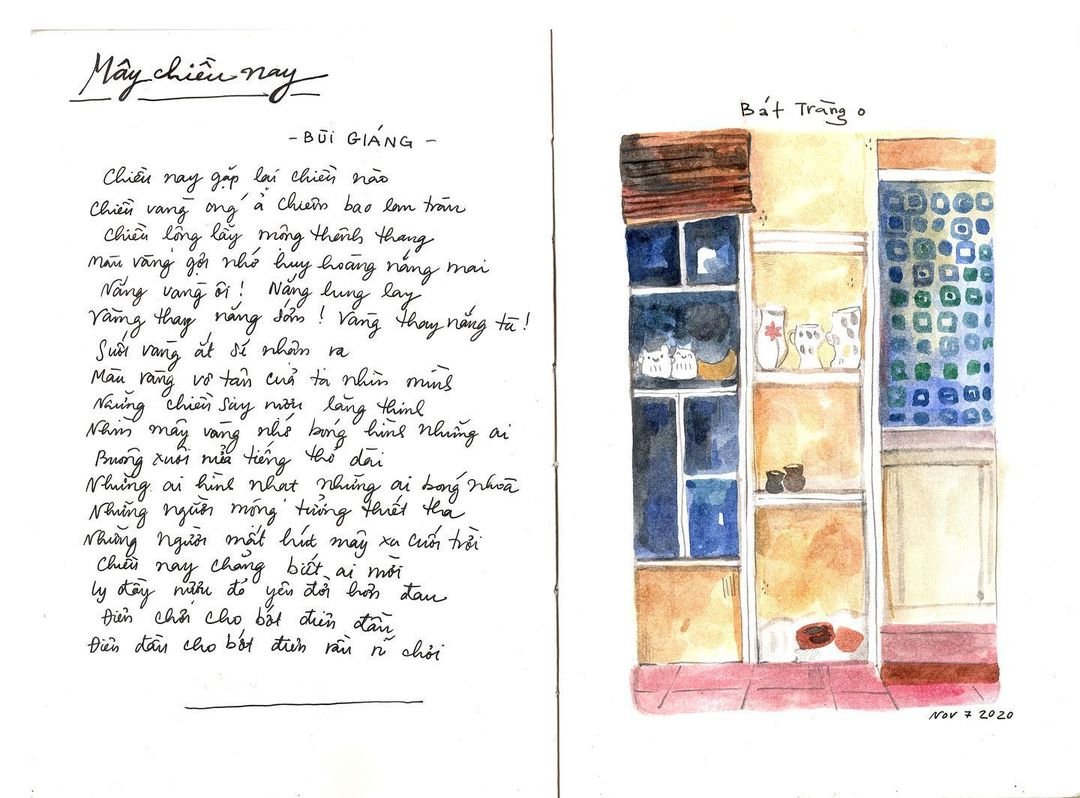 Mây chiều nay
- BÙI GIÁNG -
Chiều nay gặp lại chiều nào
Chiều vàng óng ả chiêm bao lan tràn
Chiều lồng lẫy mông thênh thang
Màu vàng gợi nhớ huy hoàng nắng mai
Nắng vàng ôi! Nắng lung lay
Vàng thay nắng sớm! Vàng thay nắng tà!
Suối vàng ắt sẽ nhận ra
Màu vàng vô tận của ta nhìn mình
Những chiều say rượu lặng thinh
Nhìn mây vàng nhớ bóng hình những ai
Buông xuôi nửa tiếng thở dài
Những ai hình nhạt những ai bóng nhoà
Những người mộng tưởng thiết tha
Những người mất hút mây xa cuối trời
Chiều nay chẳng biết ai mời
Ly đầy rượu đỏ yên đời hơn đau
Điên chơi cho bớt điên đầu
Điên đầu cho bớt điên rầu rĩ chơi
Bát Tràng
Nov 7 2020